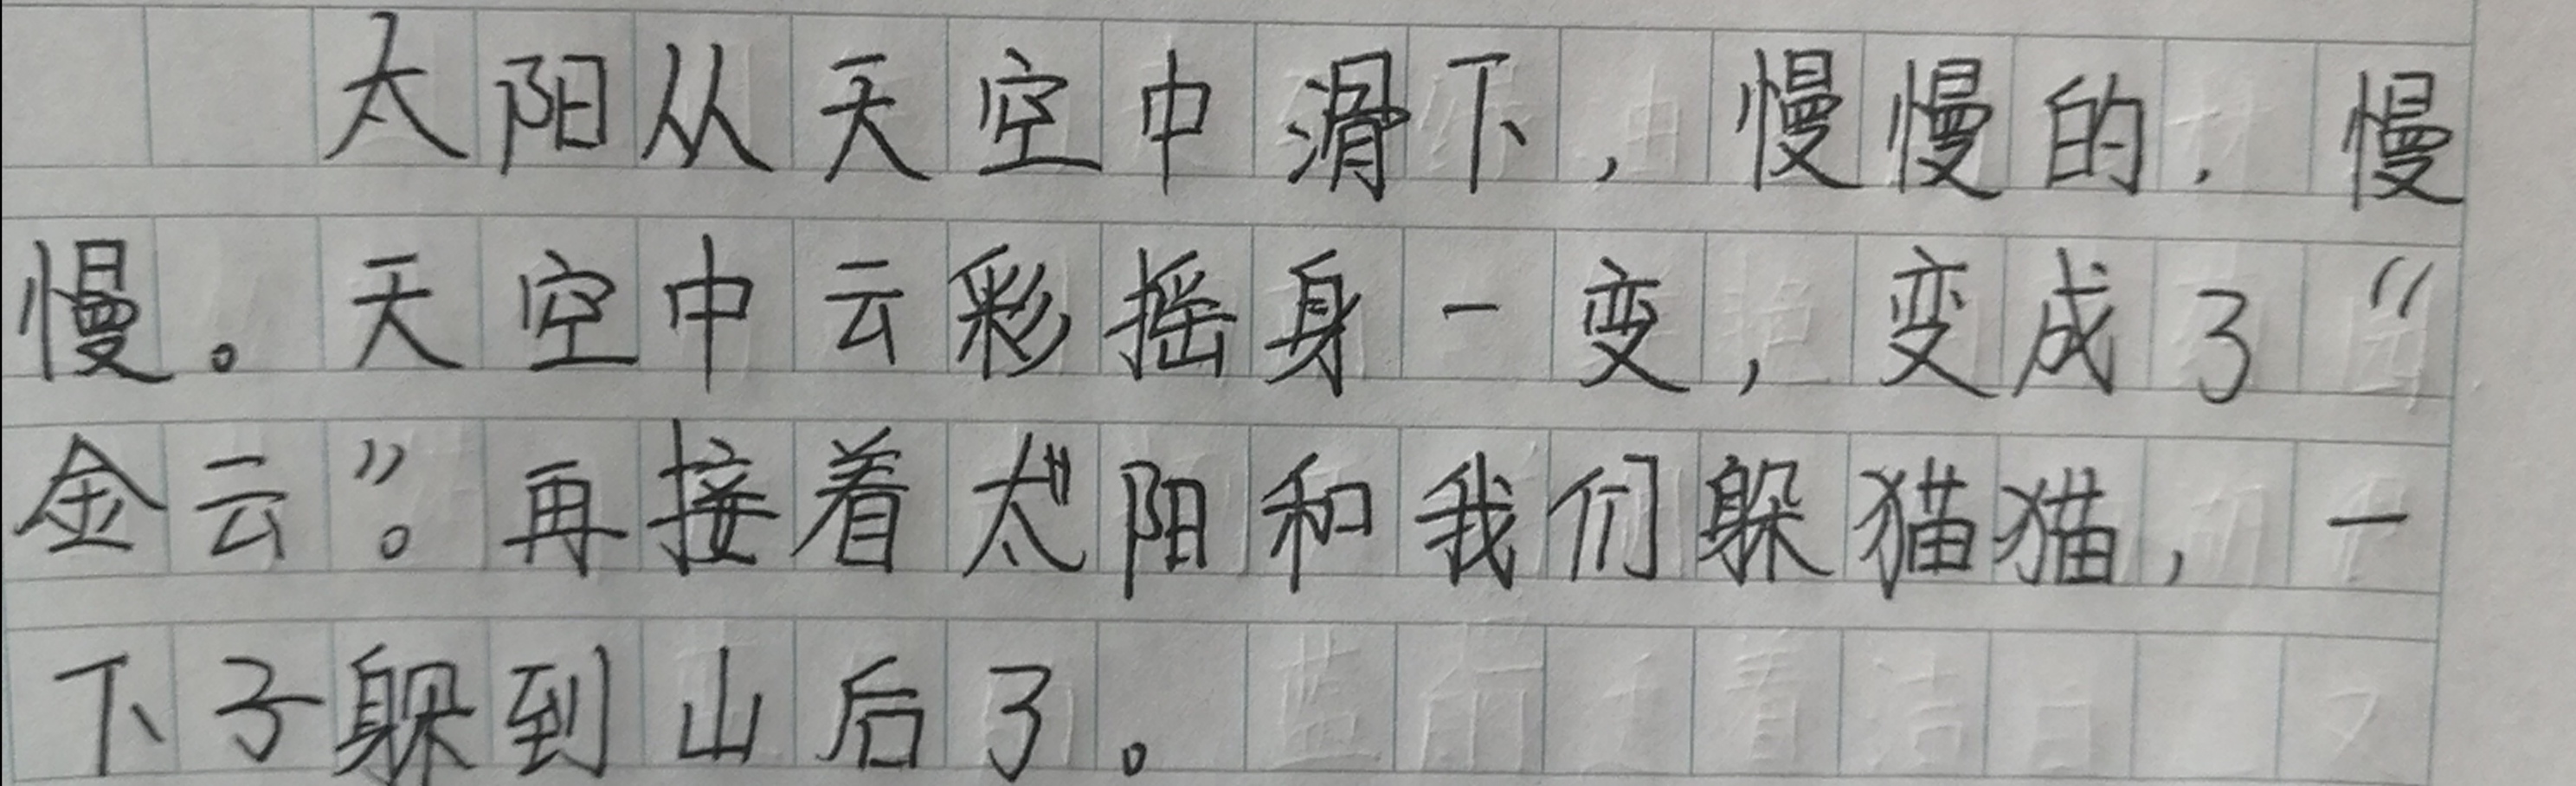 太阳从天空中滑下，慢慢的，慢
慢。天空中云彩摇身一变，变成了“
金云”。再接着太阳和我们躲猫猫，一
下子躲到山后了。